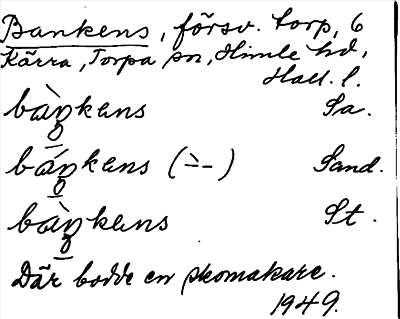 Bankens, försv. torp, 6
Kärra, Torpa sn, Himle hd,
Hall. l.
bàŋkens Sa.
báŋkens (∸–) Sand.
bàŋkens St.
Där bodde en skomakare.
1949.